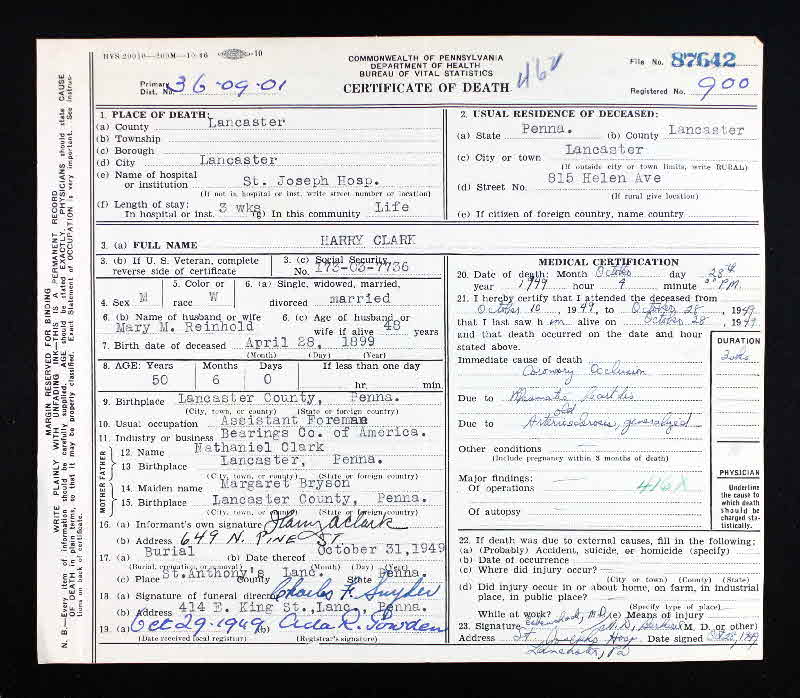 HVS 20010—200M—10-46 10
COMMONWEALTH OF PENNSYLVANIA
DEPARTMENT OF HEALTH
BUREAU OF VITAL STATISTICS
CERTIFICATE OF DEATH
File No. 87642
Primary Dist. No. 36-09-01
Registered No. 900
1. PLACE OF DEATH:
(a) County Lancaster
(b) Township
(c) Borough
(d) City Lancaster
(e) Name of hospital
or institution St. Joseph Hosp.
(If not in hospital or inst. write street number or location)
(f) Length of stay:
In hospital or inst. 3 wks. (g) In this community Life
2. USUAL RESIDENCE OF DECEASED:
(a) State Penna. (b) County Lancaster
(c) City or town Lancaster
(If outside city or town limits, write RURAL)
(d) Street No. 815 Helen Ave
(If rural give location)
(e) If citizen of foreign country, name country
3. (a) FULL NAME HARRY CLARK
3. (b) If U. S. Veteran, complete
reverse side of certificate
3. (c) Social Security
No. 173-03-7736
4. Sex M
5. Color or
race W
6. (a) Single, widowed, married,
divorced married
6. (b) Name of husband or wife
Mary M. Reinhold
6. (c) Age of husband or
wife if alive 48 years
7. Birth date of deceased April 28, 1899
(Month) (Day) (Year)
8. AGE: Years Months Days If less than one day
50 6 0 hr. min.
9. Birthplace Lancaster County, Penna.
(City, town, or county) (State or foreign country)
10. Usual occupation Assistant Foreman
11. Industry or business Bearings Co. of America.
MOTHER FATHER
12. Name Nathaniel Clark
13. Birthplace Lancaster, Penna.
(City, town, or county) (State or foreign country)
14. Maiden name Margaret Bryson
15. Birthplace Lancaster County, Penna.
(City, town, or county) (State or foreign country)
16. (a) Informant's own signature Harry A Clark
(b) Address 649 N. PINE ST.
17. (a) Burial (b) Date thereof October 31, 1949
(Burial, cremation, or removal) (Month) (Day) (Year)
(c) Place St. Anthony's Lanc. County State Penna.
18. (a) Signature of funeral director Charles F. Snyder
(b) Address 414 E. King St., Lanc., Penna.
19. (a) Oct 29-1949 (b) Ada R. Towden
(Date received local registrar) (Registrar's signature)
MEDICAL CERTIFICATION
20. Date of death: Month October day 28th
year 1949 hour 9 minute P.M.
21. I hereby certify that I attended the deceased from
October 10, 1949, to October 28, 1949
that I last saw him alive on October 28, 1949
and that death occurred on the date and hour
stated above.
DURATION
Immediate cause of death
Coronary Occlusion
Due to Rheumatic Carditis
old
Due to Arteriosclerosis, generalized
Other conditions
(Include pregnancy within 3 months of death)
Major findings:
Of operations 416X
Of autopsy
PHYSICIAN
Underline
the cause to
which death
should be
charged sta-
tistically.
22. If death was due to external causes, fill in the following:
(a) (Probably) Accident, suicide, or homicide (specify)
(b) Date of occurrence
(c) Where did injury occur?
(City or town) (County) (State)
(d) Did injury occur in or about home, on farm, in industrial
place, in public place?
(Specify type of place)
While at work? (e) Means of injury
23. Signature M.D. (M. D. or other)
Address St. Josephs Hosp. Date signed
Lancaster, Pa
MARGIN RESERVED FOR BINDING
WRITE PLAINLY WITH UNFADING INK—THIS IS A PERMANENT RECORD
N. B.—Every item of information should be carefully supplied. AGE should be stated EXACTLY. PHYSICIANS should state CAUSE
OF DEATH in plain terms, so that it may be properly classified. Exact Statement of OCCUPATION is very important. See instruc-
tions on back of certificate.